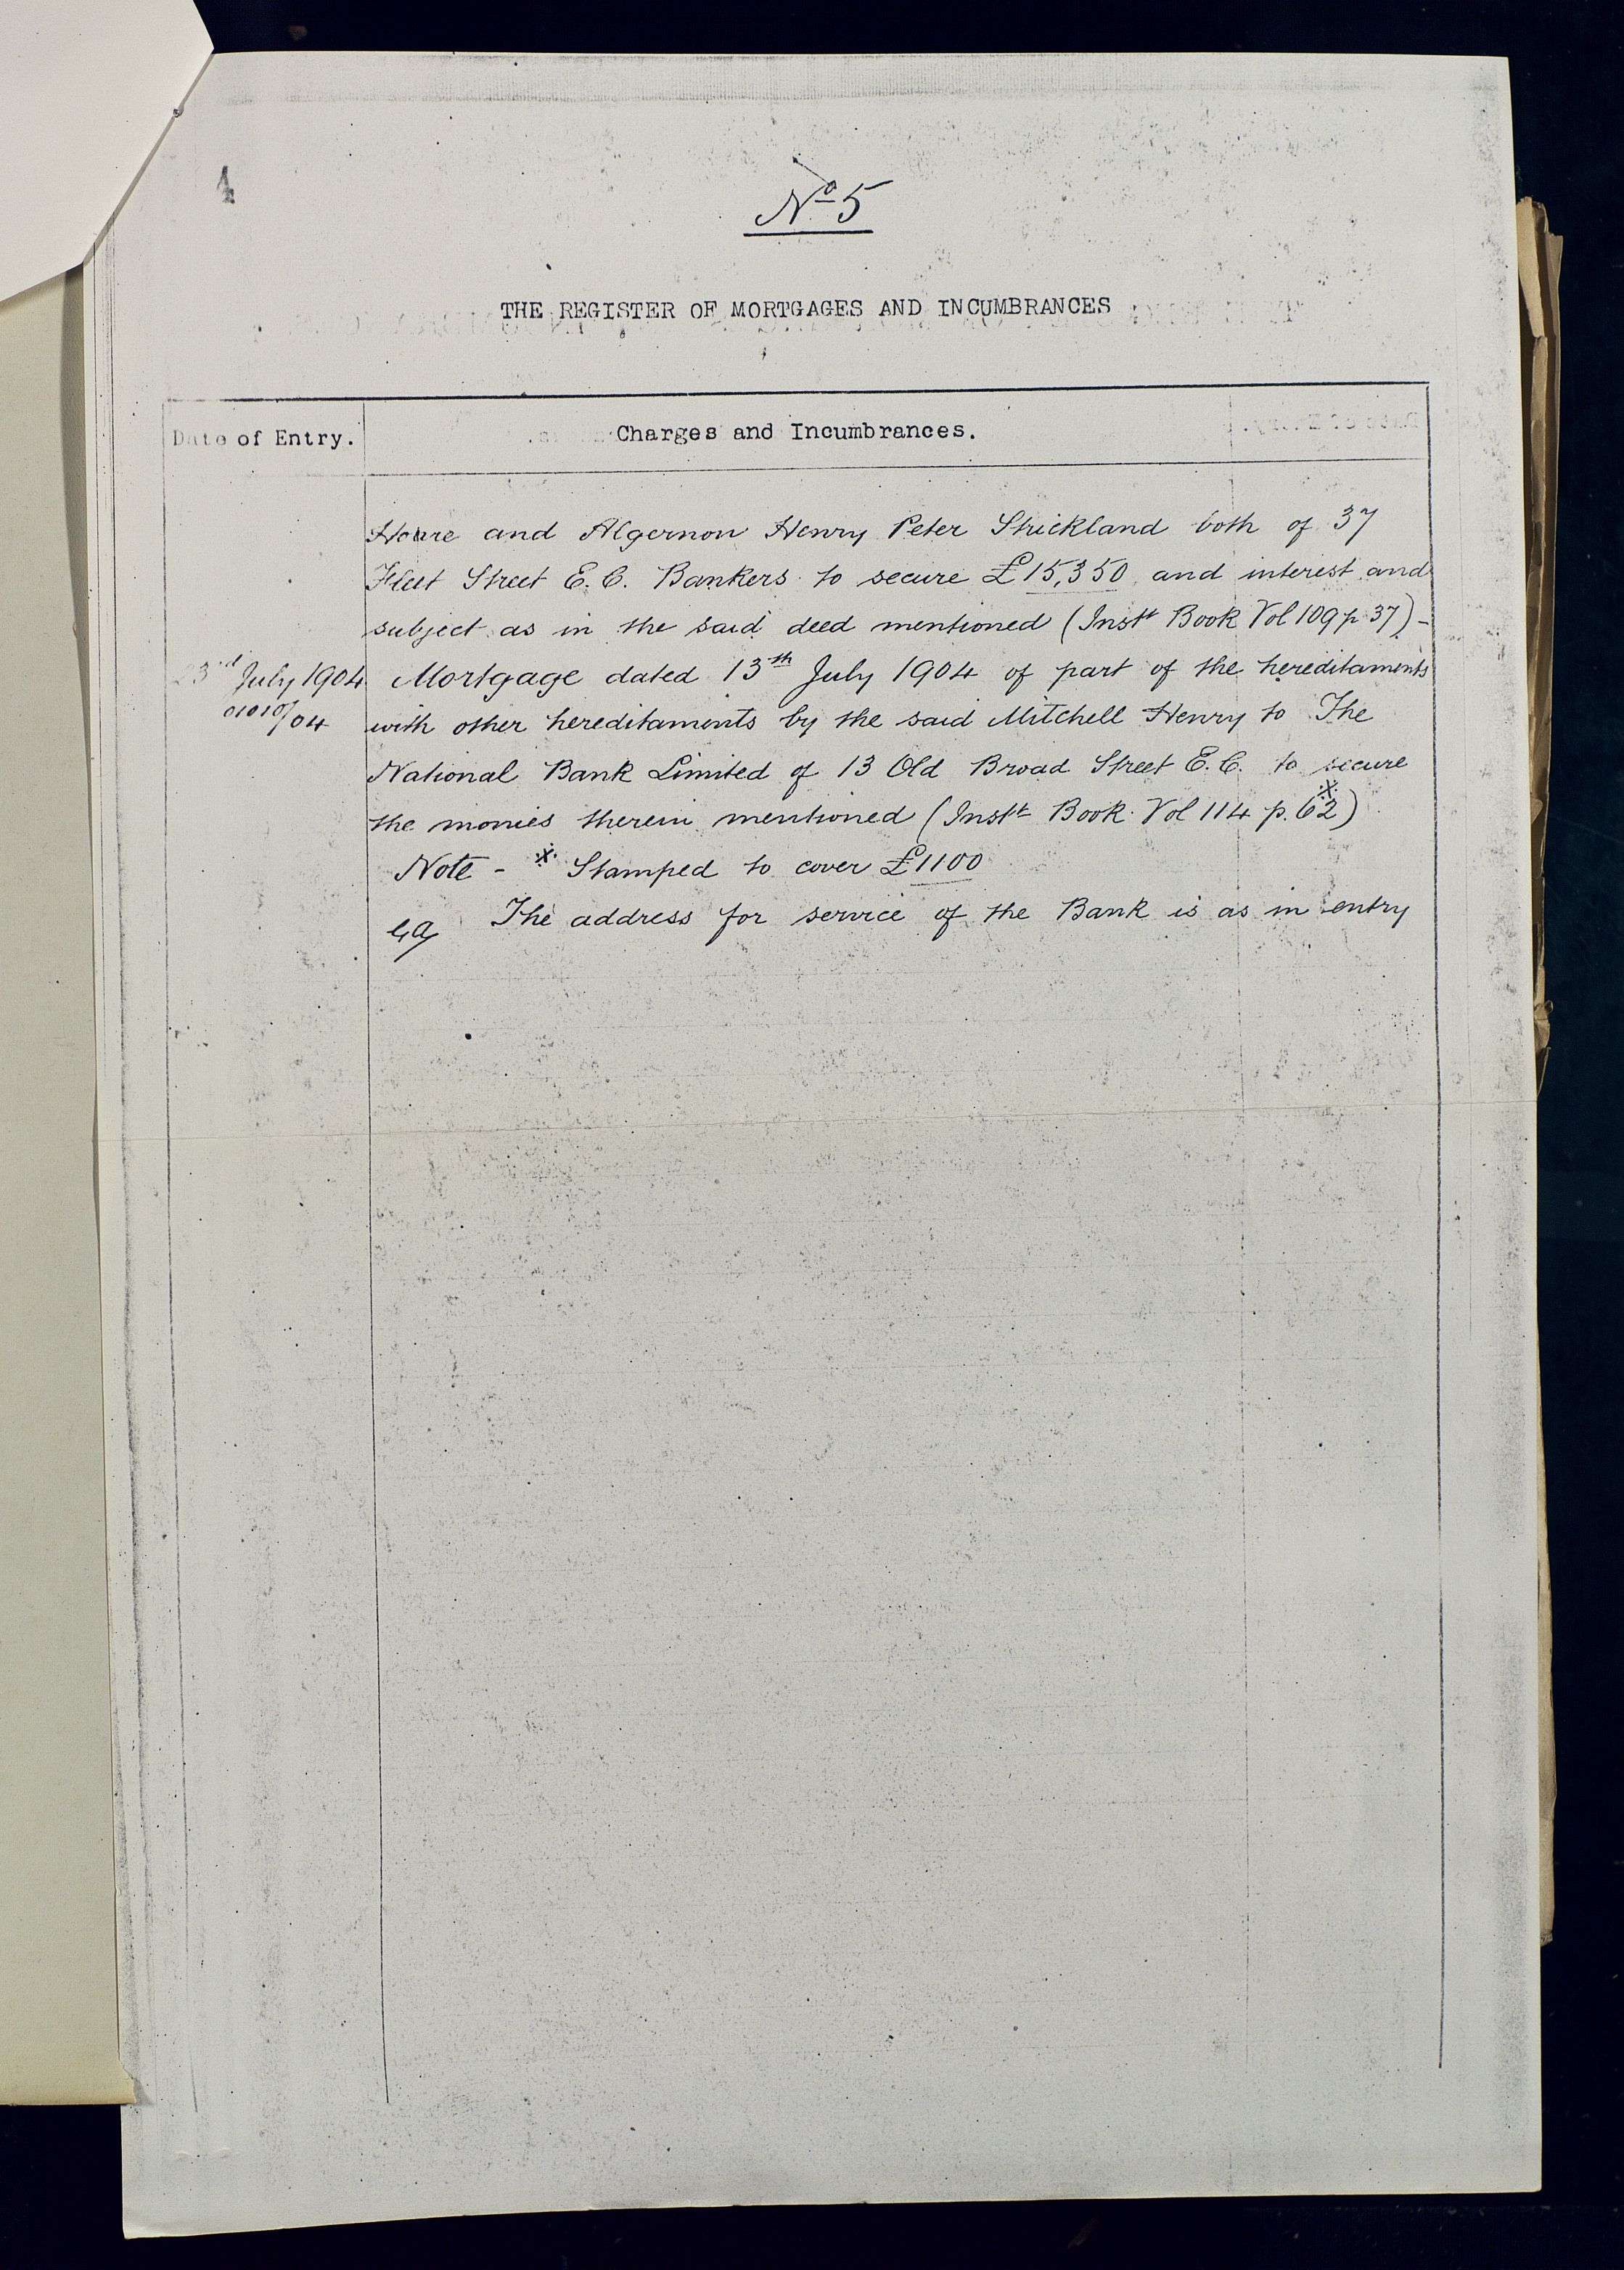 4
Nº 5
THE REGISTER OF MORTGAGES AND INCUMBRANCES
Date of Entry.
Charges and Incumbrances.
Hoare and Algernon Henry Peter Strickland both of 37
Fleet Street E.C. Bankers to secure £15,350 and interest and
subject as in the said deed mentioned (Instt Book Vol 109 p 37) -
23rd July 1904 Mortgage dated 13th July 1904 of part of the hereditaments
01010/04 with other hereditaments by the said Mitchell Henry to The
National Bank Limited of 13 Old Broad Street E.C. to secure
the monies therein mentioned (Instt Book Vol 114 p. 62※)
Note - ※ Stamped to cover £1100
The address for service of the Bank is as in entry